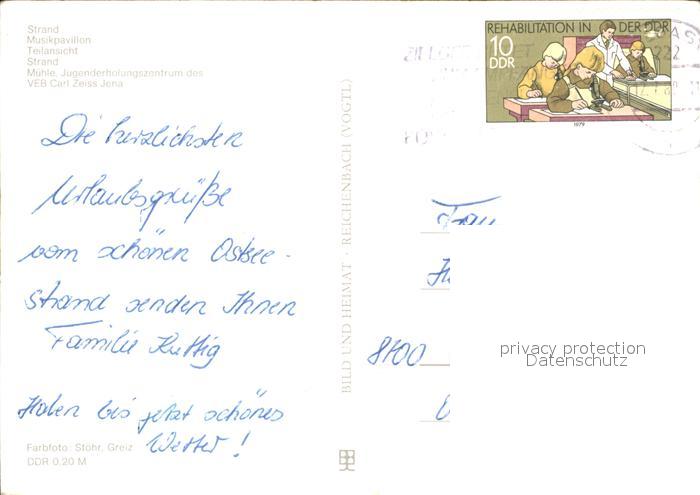 Strand
Musikpavillon
Teilansicht
Strand
Mühle, Jugenderholungszentrum des
VEB Carl Zeiss Jena
Die herzlichsten
Urlaubsgrüße
vom schönen Ostsee-
strand senden Ihnen
Familie Kuttig
Haben bis jetzt schönes
Wetter!
Farbfoto: Stöhr, Greiz
DDR 0.20 M
BILD UND HEIMAT · REICHENBACH (VOGTL)
REHABILITATION IN DER DDR
10
DDR
1979
Frau
8100
privacy protection
Datenschutz